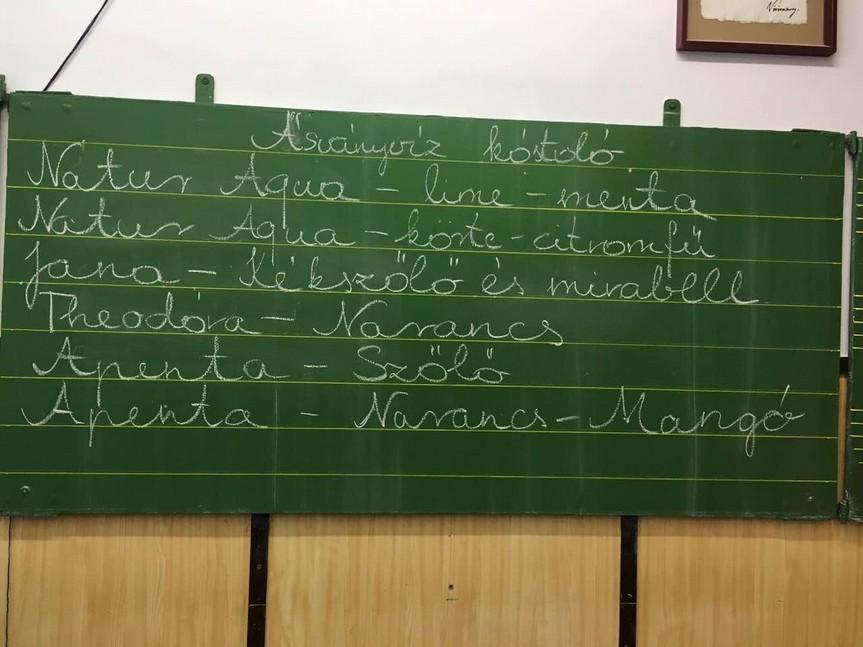 Vörösmarty.
Ásványvíz kóstoló
Natur Aqua – lime – menta
Natur Aqua – körte – citromfű
Jana – Kékszőlő és mirabell
Theodóra – Narancs
Apenta – Szőlő
Apenta – Narancs – Mangó